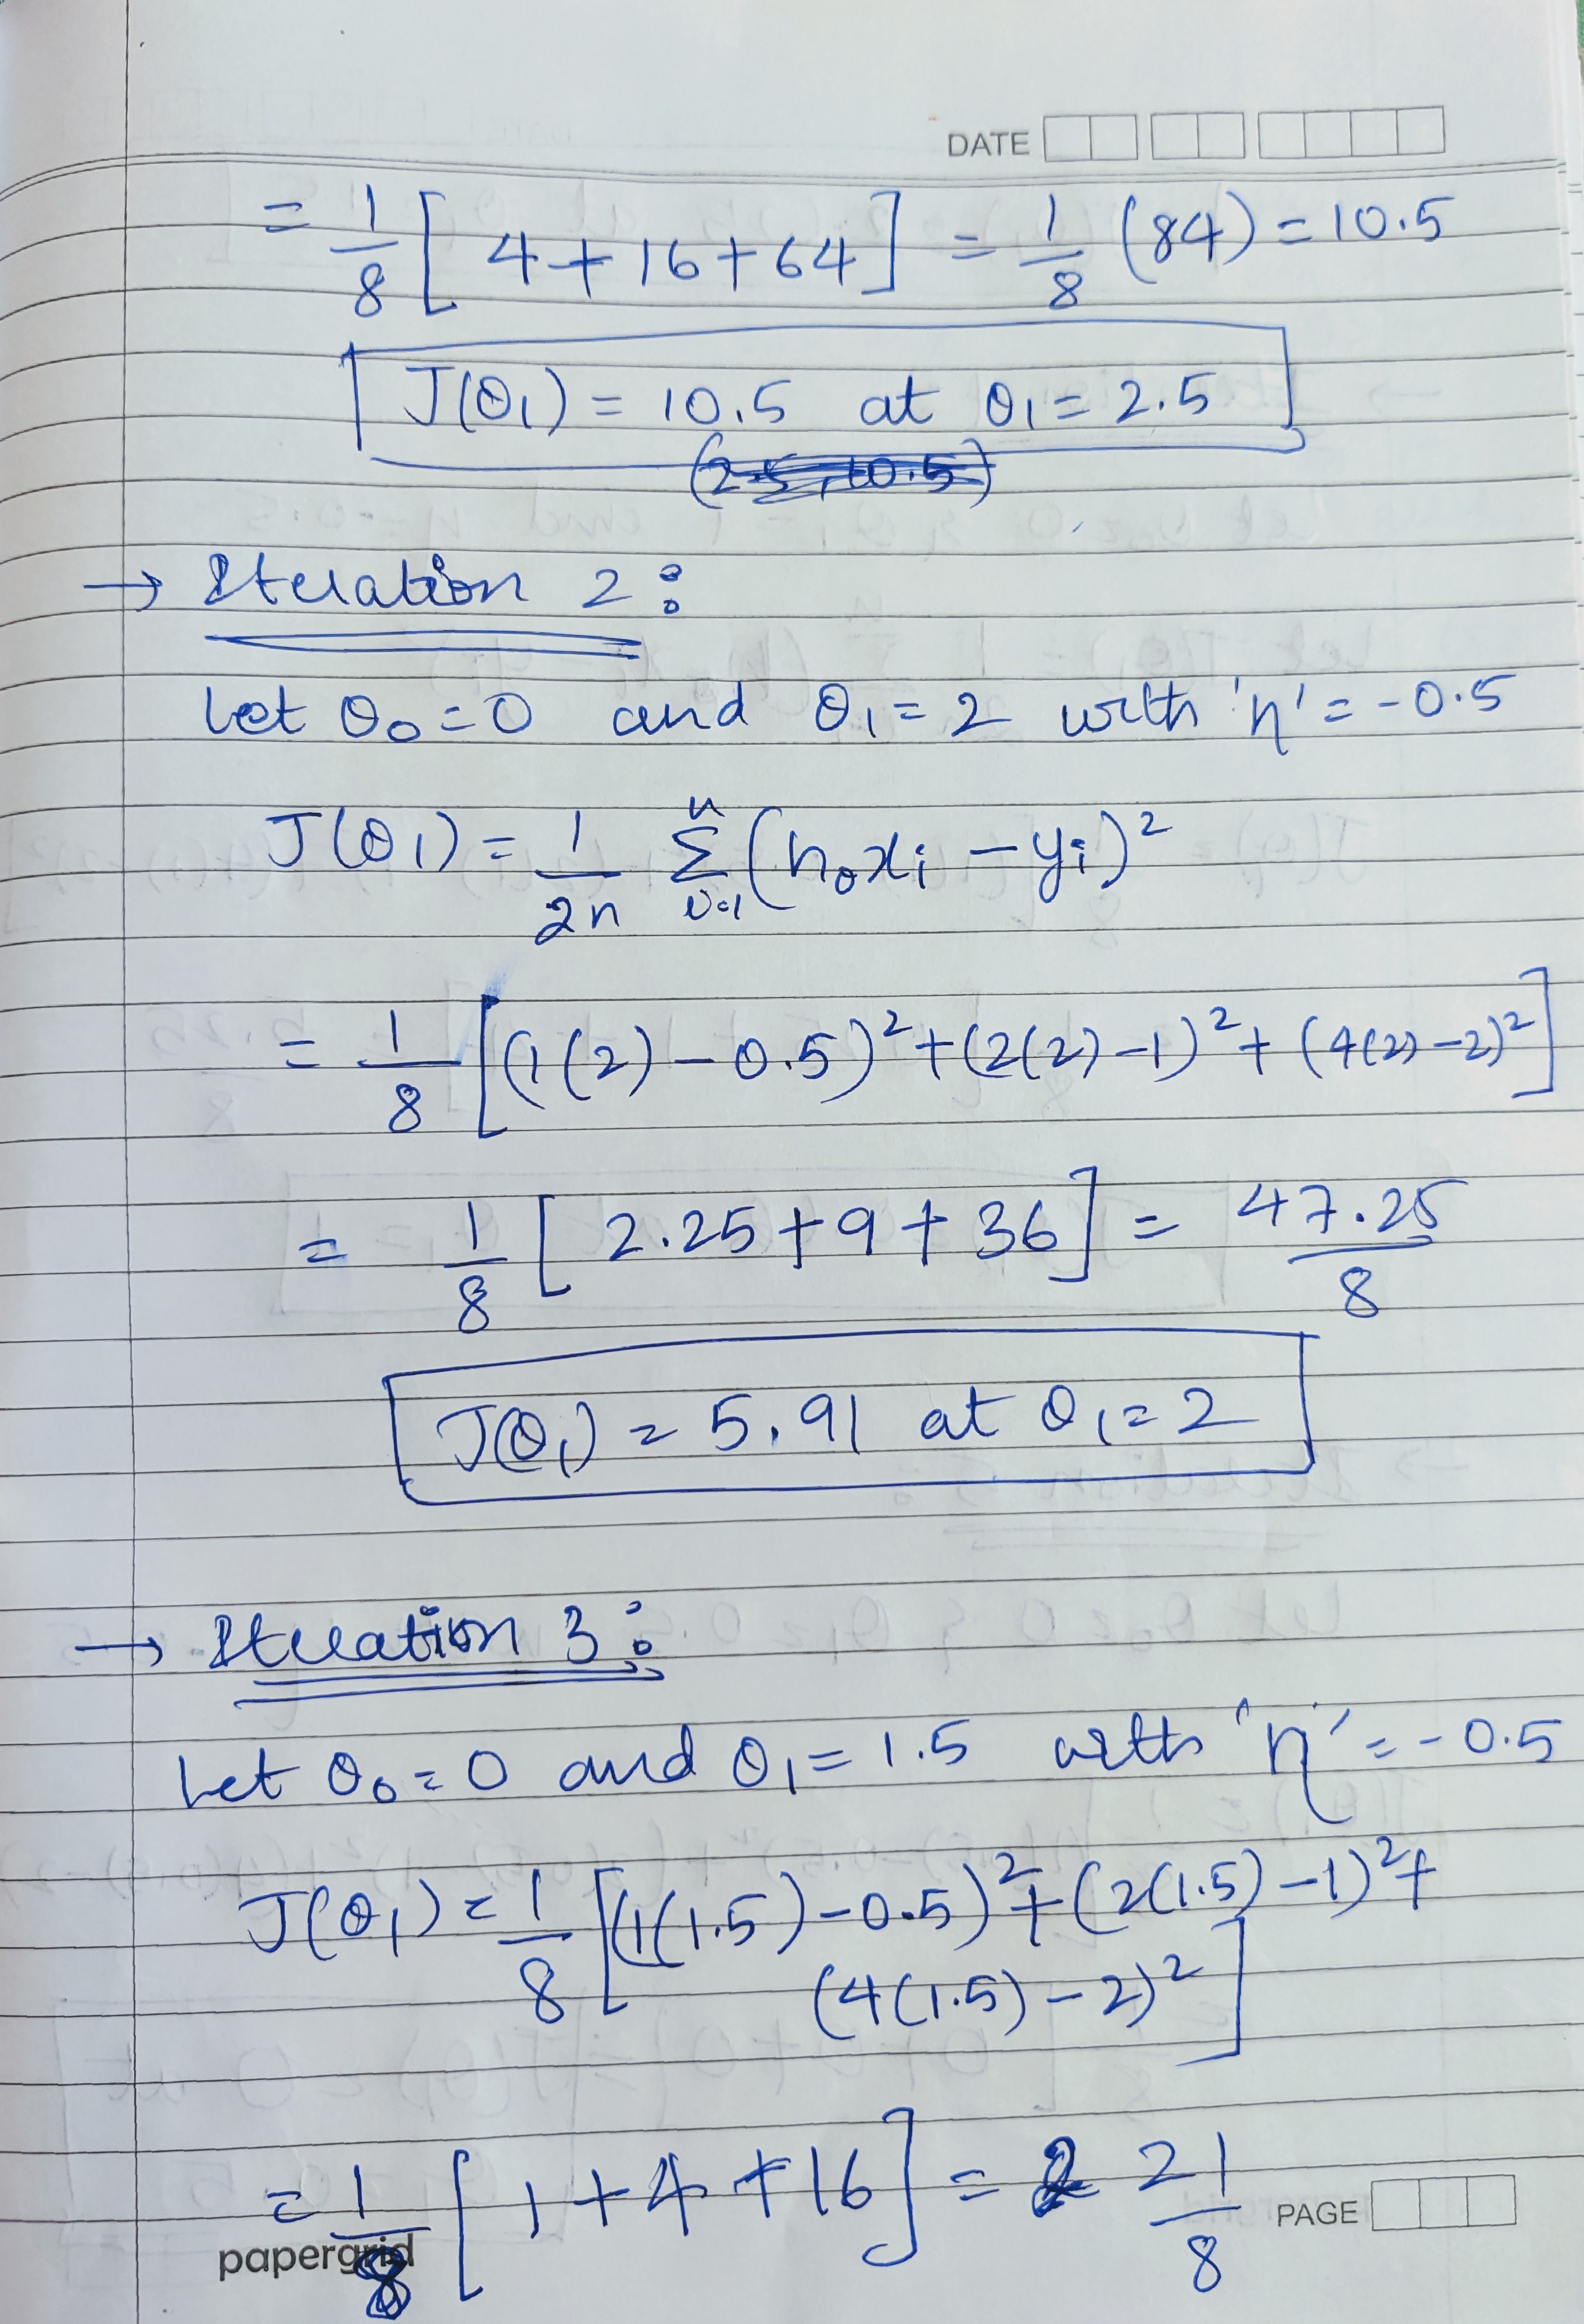 DATE
= 1/8 [4 + 16 + 64] = 1/8 (84) = 10.5
J(θ1) = 10.5 at θ1 = 2.5
(2.5, 10.5)
→ Iteration 2:
Let θ0 = 0 and θ1 = 2 with 'η' = -0.5
J(θ1) = 1/2n Σ i=1 n (hθxi - yi)²
= 1/8 [(1(2) - 0.5)² + (2(2) - 1)² + (4(2) - 2)²]
= 1/8 [2.25 + 9 + 36] = 47.25/8
J(θ1) = 5.91 at θ1 = 2
→ Iteration 3:
Let θ0 = 0 and θ1 = 1.5 with 'η' = -0.5
J(θ1) = 1/8 [(1(1.5) - 0.5)² + (2(1.5) - 1)² +
(4(1.5) - 2)²]
= 1/8 [1 + 4 + 16] = 21/8
PAGE
papergrid